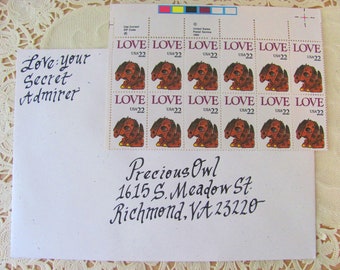 LOVE LOVE LOVE LOVE LOVE LOVE
USA 22 USA 22 USA 22 USA 22 USA 22 USA 22
LOVE LOVE LOVE LOVE LOVE LOVE
USA 22 USA 22 USA 22 USA 22 USA 22 USA 22
Love: your
Secret
Admirer
Precious Owl
1615 S. Meadow St.
Richmond, VA 23220